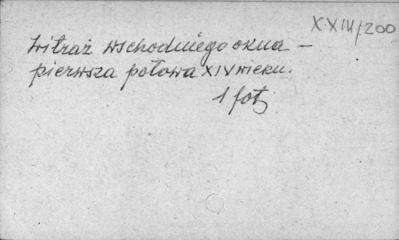 X.XIII/200
witraż wschodniego okna –
pierwsza połowa XIV wieku.
1 fot.